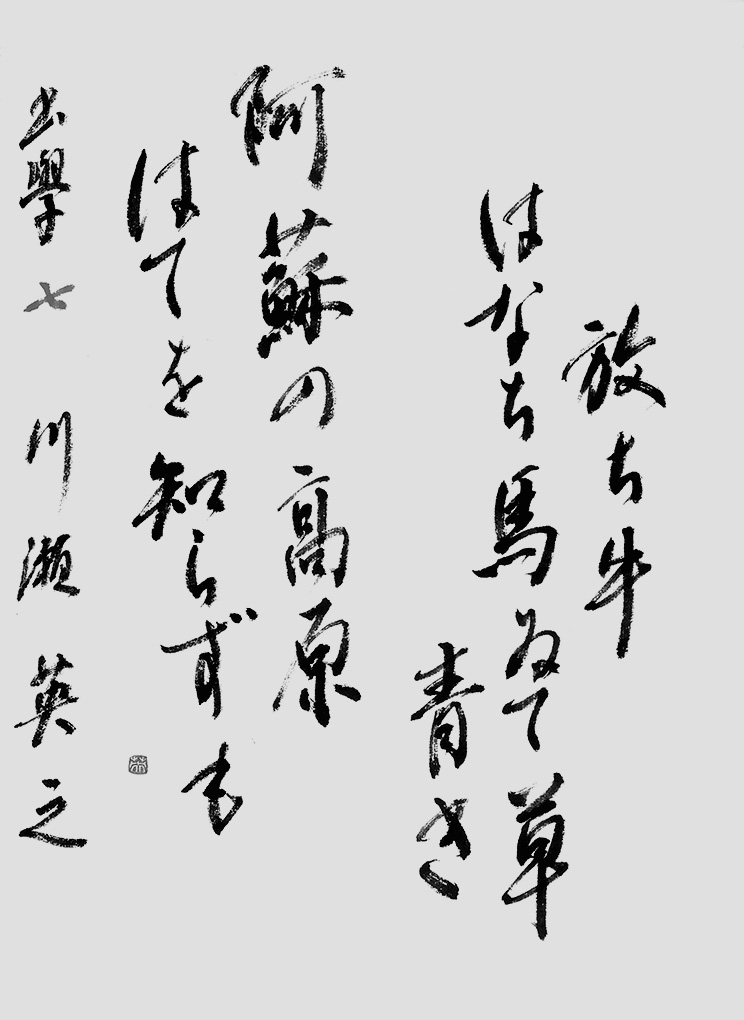 放ち牛
はなち馬ゐて草
青き
阿蘇の高原
はてを知らずも
書學 七 川瀬 英之